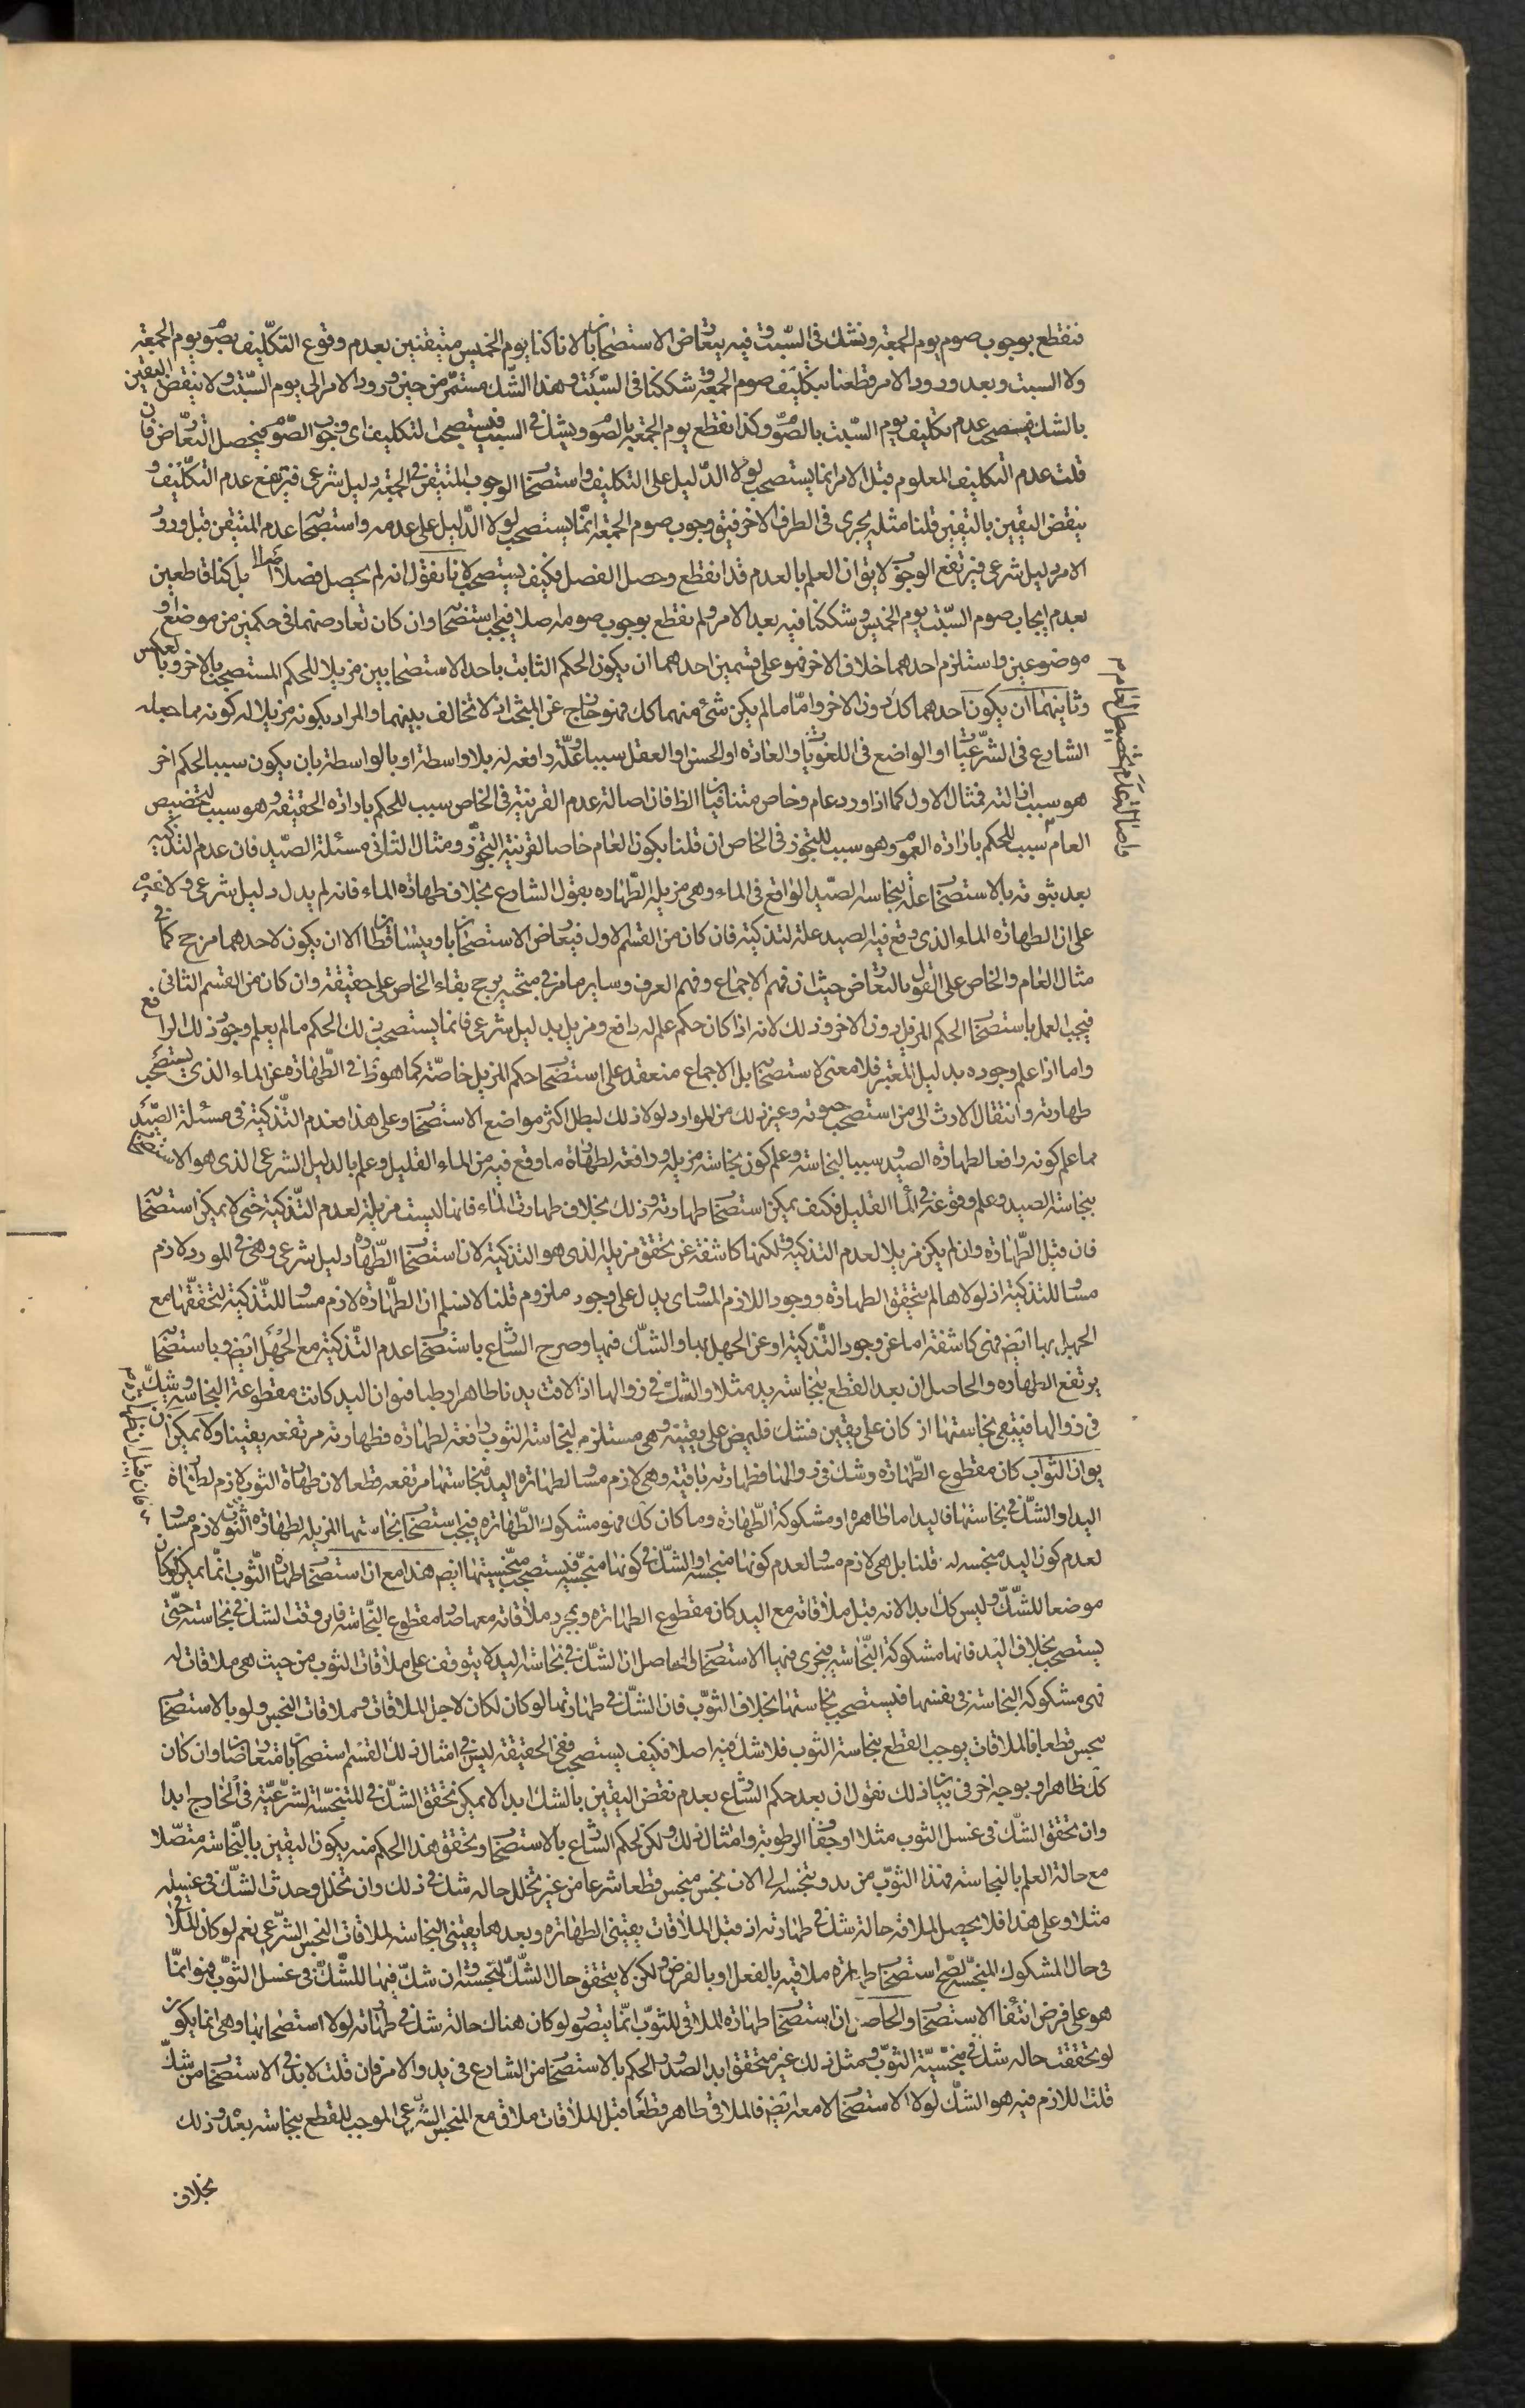 فنقطع بوجوب صوم يوم الجمعة ونشك فى السبت وفيه يتعارض الاستصحابان لانا كنا يوم الخميس متيقنين بعدم وقوع التكليف بصوم يوم الجمعة
ولا السبت وبعد ورود الامر قطعنا بتكليف صوم الجمعة وشككنا فى السبت وهذا الشك مستمر من حين ورود الامر الى يوم السبت ولا ينقض اليقين
بالشك فيستصحب عدم تكليف يوم السبت بالصوم وكذا نقطع يوم الجمعة بالصوم ويشك فى السبت فيستصحب التكليف اى وجوب الصوم فيحصل التعارض فان
قلت عدم التكليف المعلوم قبل الامر انما يستصحب لولا الدليل على التكليف واستصحاب الوجوب المتيقن فى الجمعة دليل شرعى فيرتفع عدم التكليف و
ينقض اليقين باليقين قلنا مثله يجرى فى الطرف الاخر فيق وجوب صوم الجمعة انما يستصحب لولا الدليل على عدمه واستصحاب عدمه المتيقن قبل ورود
الامر دليل شرعى فيرتفع الوجوب لا يق ان العلم بالعدم قد انقطع وحصل الفصل فكيف يستصحب لانا نقول انه لم يحصل فصل اصلا بل كنا قاطعين
بعدم ايجاب صوم السبت يوم الخميس وشككنا فيه بعد الامر ولم نقطع بوجوب صومه اصلا فيجب استصحابه وان كان تعارضهما فى حكمين من موضع او
موضوعين واستلزم احدهما خلاف الاخر فهو على قسمين احدهما ان يكون الحكم الثابت باحد الاستصحابين مزيلا للحكم المستصحب بالاخر وبالعكس
وثانيهما ان يكون احدهما كذ دون الاخر واما ما لم يكن شئ منهما كك فهو خارج عن المبحث اذ لا تخالف بينهما والمراد بكونه مزيلا له كونه مما جعله
الشارع فى الشرعيات او الواضع فى اللغويات او العادة او الحس او العقل سببا وعلة دافعه له بلا واسطة او بالواسطة بان يكون سببا لحكم اخر
هو سبب ازالته فمثال الاول كما اذا ورد عام وخاص متنافيان الظ فان اصالة عدم القرينة فى الخاص سبب للحكم بارادة الحقيقة وهو سبب لتخصيص
العام سبب للحكم بارادة العموم وهو سبب للتجوز فى الخاص ان قلنا بكون العام خاصا لقرينة التجوز ومثال الثانى مسئلة الصيد فان عدم التذكية
بعد ثبوته بالاستصحاب علة لنجاسة الصيد الواقع فى الماء وهى مزيلة الطهارة بقول الشارع بخلاف طهارة الماء فانه لم يدل دليل شرعى ولا غيره
على ان الطهارة الماء الذى وقع فيه الصيد علة لتذكيته فان كان من القسم الاول فيتعارض الاستصحابان ويتساقطان الا ان يكون لاحدهما مرجح كما فى
مثال العام والخاص على القول بالتعارض حيث ان فهم الاجماع وفهم العرف وساير ما مر فى مبحثه يرجح بقاء الخاص على حقيقته وان كان من القسم الثانى
فيجب العمل باستصحاب الحكم المزيل دون الاخر وذلك لانه اذا كان حكم علم له رافع ومزيل بدليل شرعى فانما يستصحب ذلك الحكم ما لم يعلم وجود ذلك الرافع
واما اذا علم وجوده بدليل المعتبر فلا معنى لاستصحابه بل الاجماع منعقد على استصحاب حكم المزيل خاصة كما هو ظ فى الطهارة عن الماء الذى يستصحب
طهارته وانتقال الارث الى من استصحب حيوته وغير ذلك من الموارد لولا ذلك لبطل اكثر مواضع الاستصحاب وعلى هذا فعدم التذكية فى مسئلة الصيد
مما علم كونه رافعا لطهارة الصيد وسببا لنجاسته وعلم كون نجاسته مزيله ورافعة لطهارة ما وقع فيه من الماء القليل وعلم بالدليل الشرعى الذى هو الاستصحاب
نجاسة الصيد وعلم وقوعه فى الماء القليل فكيف يمكن استصحاب طهارته وذلك بخلاف طهارة الماء فانها ليست مزيلة لعدم التذكية حتى لا يمكن استصحابه
فان قيل الطهارة وان لم يكن مزيلا لعدم التذكية ولكنها كاشفة عن تحقق مزيله الذى هو التذكية لان استصحاب الطهارة دليل شرعى وهى فى المورد لازم
مساو للتذكية اذ لولاها لم يتحقق الطهارة ووجود اللازم المساوى يدل على وجود ملزوم قلنا لا نسلم ان الطهارة لازم مساو للتذكية لتحققها مع
الجهل بها ايض فهى كاشفة اما عن وجود التذكية او عن الجهل بها والشك فيها وصرح الشارع باستصحاب عدم التذكية مع الجهل ايض وباستصحابه
يرتفع الطهارة والحاصل ان بعد القطع بنجاسة يد مثلا والشك فى زوالها اذا لاقت يدنا طاهرا رطبا فهو ان اليد كانت مقطوعة النجاسة وشك
فى زوالها فيبقى نجاستها اذ كان على يقين فشك فليمض على يقينه وهى مستلزم لنجاسة الثوب رافعة لطهارة فطهارته مرتفعه يقينا ولا يمكن ان
يق ان الثوب كان مقطوع الطهارة وشك فى زوالها فطهارته باقية وهى لازم مساو لطهارة اليد فنجاستها مرتفعه قطعا لان طهارة الثوب لازم لطهارة
اليد او الشك فى نجاستها فاليد اما طاهرة او مشكوكة الطهارة وما كان كك فهو مشكوك الطهارة فيجب استصحاب نجاستها المزيلة لطهارة الثوب لازم مساو
لعدم كون اليد منجسه له قلنا بل هى لازم مساو لعدم كونها منجسه او الشك فى كونها منجسه فيستصحب منجسيتها ايض هذا مع ان استصحاب طهارة الثوب انما يمكن لو كان
موضعا للشك وليس كك ابدا لانه قبل ملاقاته مع اليد كان مقطوع الطهارة وبمجرد ملاقاته معها صار مقطوع النجاسة فاين وقت الشك فى نجاسته حتى
يستصحب بخلاف اليد فانها مشكوكة النجاسة فيجرى فيها الاستصحاب والحاصل ان الشك فى نجاسة اليد لا يتوقف على ملاقات الثوب من حيث هى ملاقات له
فهى مشكوكة النجاسة فى نفسها فيستصحب نجاستها بخلاف الثوب فان الشك فى طهارتها لو كان لكان لاجل الملاقات وملاقات النجس ولو بالاستصحاب
نجس قطعا فالملاقات يوجب القطع بنجاسة الثوب فلا شك فيه اصلا فكيف يستصحب ففى الحقيقة ليس فى امثال ذلك القسم استصحابان متعارضان وان كان
كك ظاهرا وبوجه اخر فى بيان ذلك نقول ان بعد حكم الشارع بعدم نقض اليقين بالشك ابدا لا يمكن تحقق الشك فى المتنجسة الشرعية فى الخارج ابدا
وان تحقق الشك فى غسل الثوب مثلا او جفاف الرطوبة وامثال ذلك ولكن لحكم الشارع بالاستصحاب وتحقق هذا الحكم منه يكون اليقين بالنجاسة متصلا
مع حالة العلم بالنجاسة فهذا الثوب من بدو تنجسه الى الان نجس منجس قطعا شرعا من غير تخلل حاله شك فى ذلك وان تخلل وحدث الشك فى غسله
مثلا وعلى هذا فلا يحصل لملاقه حالة شك فى طهارته اذ قبل الملاقات يقينى الطهارة وبعدها يقينى النجاسه لملاقات النجس الشرعى نعم لو كان الملاقى
فى حال المشكوك المنجسه لصح استصحاب طهارة ملاقيه بالفعل او بالفرض ولكن لا يتحقق حال الشك لتنجسه وان شك فيها للشك فى غسل الثوب فهو انما
هو على فرض انتفاء الاستصحاب والحاصل ان استصحاب طهارة الملاقى للثوب انما يتصور لو كان هناك حالة شك فى طهارته لولا استصحابها وهى انما يكون
لو تحققت حاله شك فى منجسية الثوب ومثل ذلك غير متحقق ابدا لصدور الحكم بالاستصحاب من الشارع فى بدو الامر فان قلت لا بد فى الاستصحاب من شك
قلت اللازم فيه هو الشك لولا الاستصحاب لا معه ايض فالملاقى طاهر قطعا قبل الملاقات ملاق مع المنجس الشرعى الموجب للقطع بنجاسته بعد وذلك
بخلاف